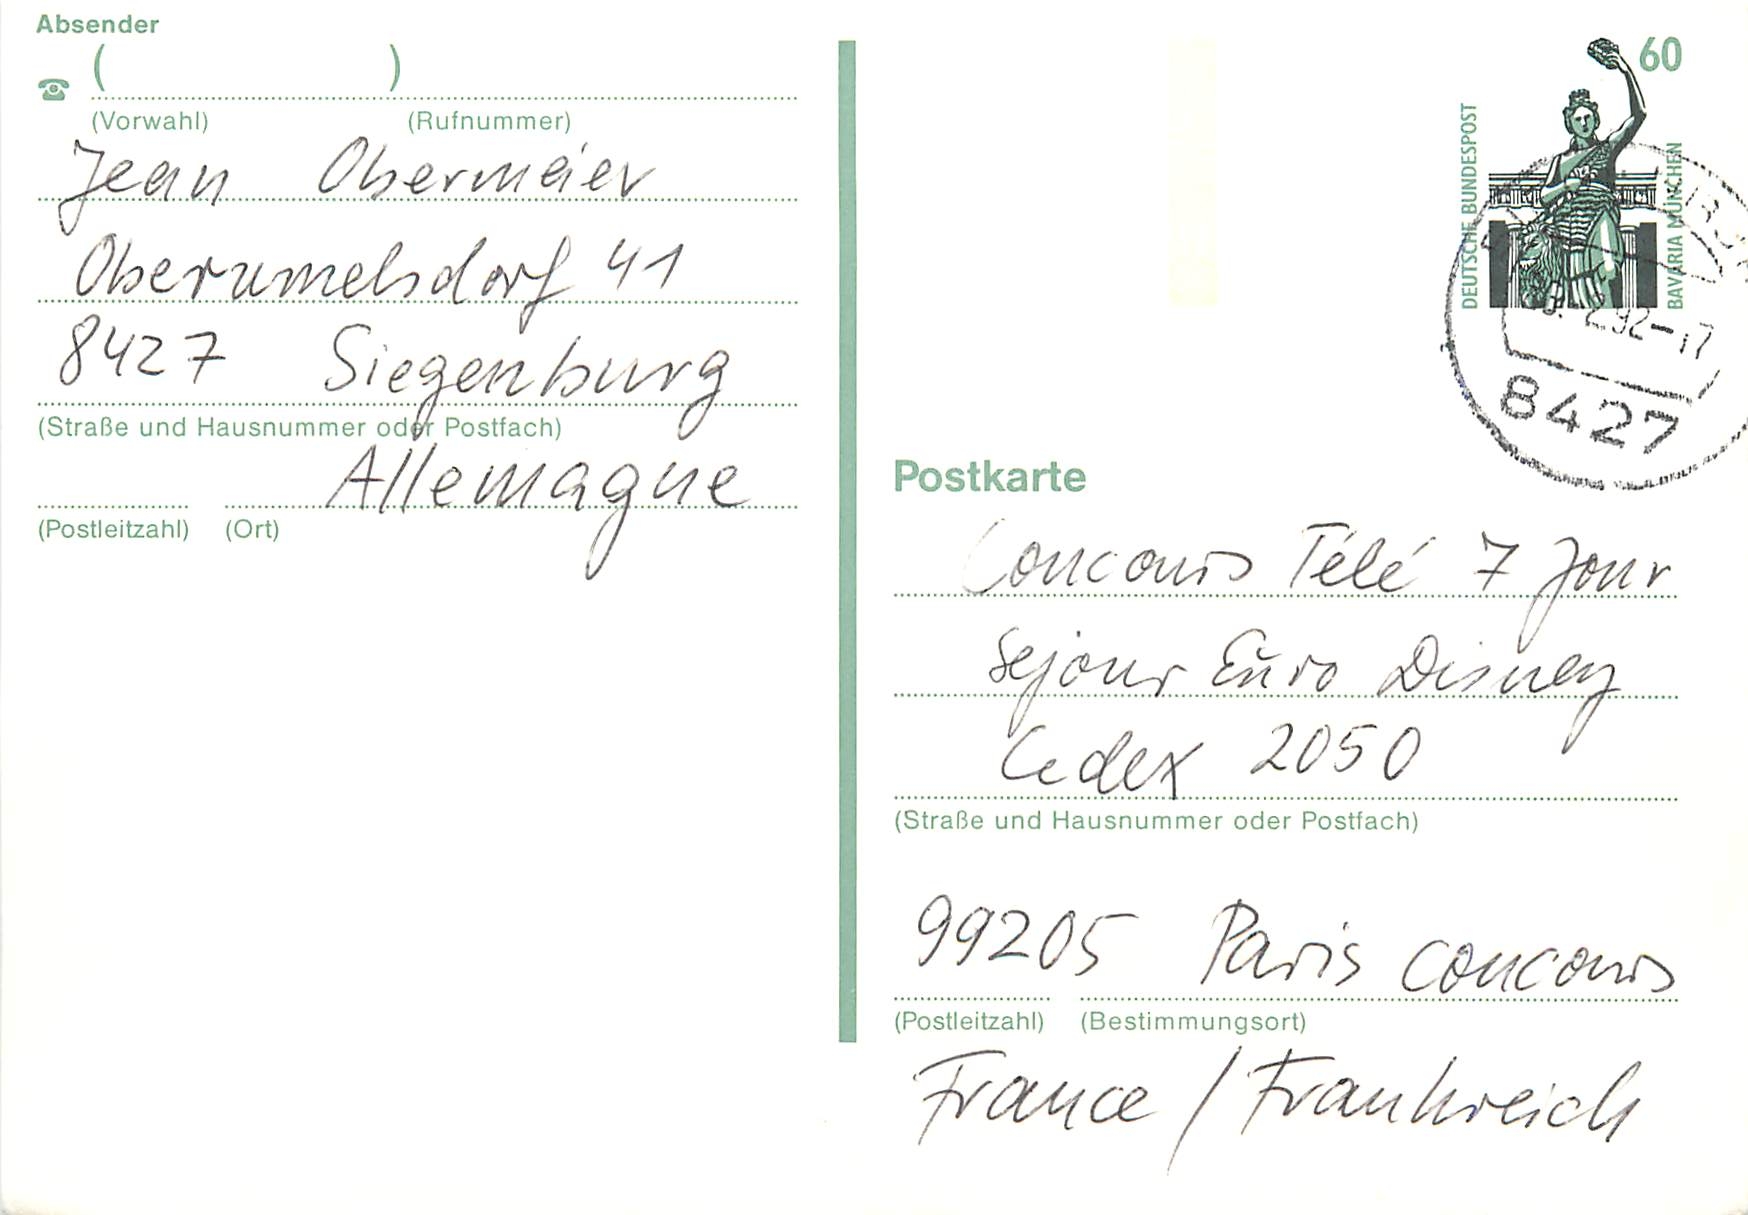 Absender
( )
(Vorwahl) (Rufnummer)
Jean Obermeier
Oberumelsdorf 41
8427 Siegenburg
(Straße und Hausnummer oder Postfach)
Allemagne
(Postleitzahl) (Ort)
60
DEUTSCHE BUNDESPOST
BAVARIA MÜNCHEN
2.92-17
8427
Postkarte
Concours Télé 7 Jour
Sejour Euro Disney
Cedex 2050
(Straße und Hausnummer oder Postfach)
99205 Paris concours
(Postleitzahl) (Bestimmungsort)
France / Frankreich